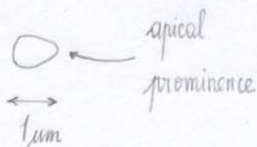 apical
prominence
1 µm